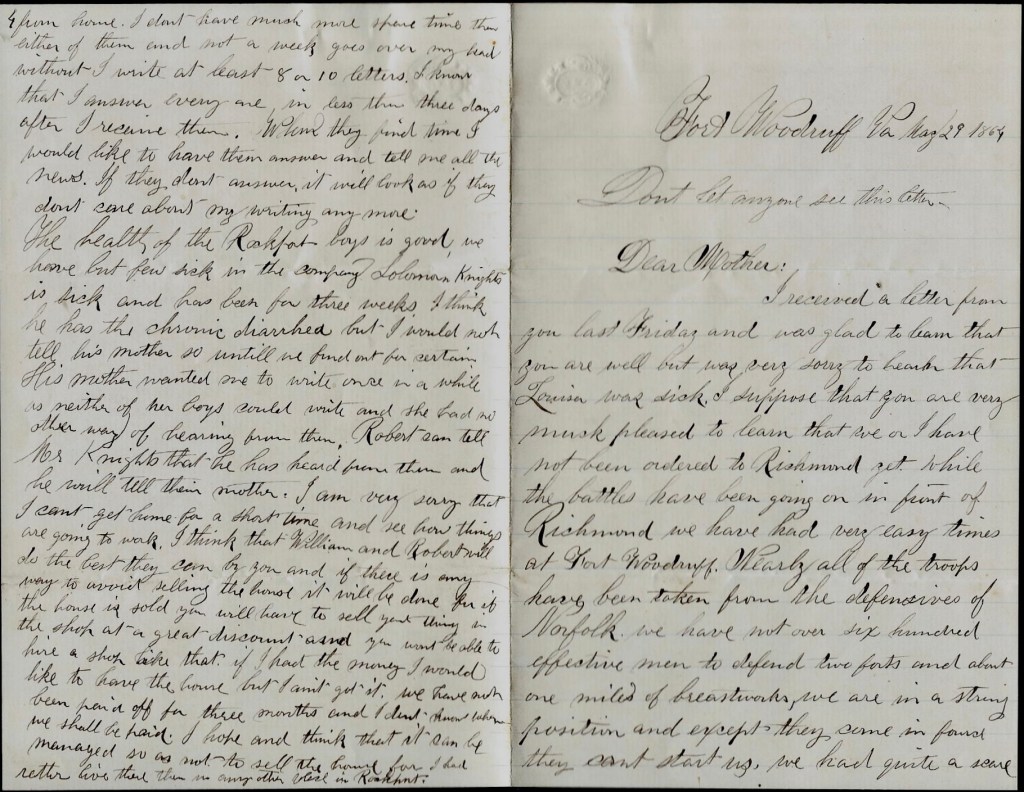 Fort Woodruff Va May 29 1864
Dont let anyone see this letter
Dear Mother:
I received a letter from
you last Friday and was glad to learn that
you are well but was very sorry to hear that
Louisa was sick. I suppose that you are very
much pleased to learn that we or I have
not been ordered to Richmond yet. While
the battles have been going on in front of
Richmond we have had very easy times
at Fort Woodruff. Nearly all of the troops
have been taken from the defencives of
Norfolk. we have not over six hundred
effective men to defend two forts and about
one mile of breastworks, we are in a strong
position and except they come in force
they cant start us. we had quite a scare
4 from home. I dont have much more spare time then
either of them and not a week goes over my head
without I write at least 8 or 10 letters. I know
that I answer every one, in less then three days
after I receive them. When they find time I
would like to have them answer and tell me all the
news. If they dont answer, it will look as if they
dont care about my writing any more.
The health of the Rockport boys is good, we
have but few sick in the company Solomon Knights
is sick and has been for three weeks, I think
he has the chronic diarrhea but I would not
tell his mother so untill we find out for certain
His mother wanted me to write once in a while
as neither of her boys could write and she had no
other way of hearing from them. Robert can tell
Mr Knights that he has heard from them and
he will tell their mother. I am very sorry that
I cant get home for a short time and see how things
are going to work. I think that William and Robert will
do the best they can by you and if there is any
way to avoid selling the house it will be done for if
the house is sold you will have to sell your things in
the shop at a great discount and you wont be able to
hire a shop like that. if I had the money I would
like to have the house but I aint got it. we have not
been paid off for three months and I dont know when
we shall be paid. I hope and think that it can be
managed so as not to sell the house for I had
rether live there then in any other place in Rockport.